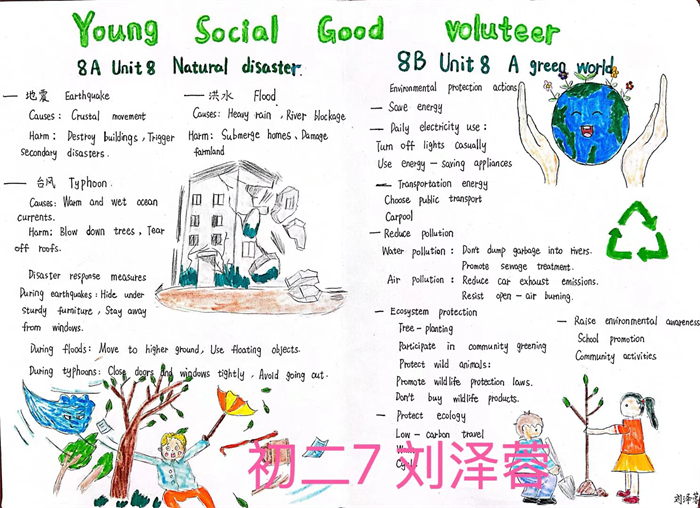 Young Social Good voluteer
8A Unit 8 Natural disaster.
一 地震 Earthquake
Causes: Crustal movement
Harm: Destroy buildings, Trigger
secondary disasters.
一 洪水 Flood
Causes: Heavy rain, River blockage
Harm: Submerge homes, Damage
farmland
一 台风 Typhoon.
Causes: Warm and wet ocean
currents.
Harm: Blow down trees, Tear
off roofs.
Disaster response measures
During earthquakes: Hide under
sturdy furniture, Stay away
from windows.
During floods: Move to higher ground, Use floating objects.
During typhoons: Close doors and windows tightly, Avoid going out.
8B Unit 8 A green world
Environmental protection actions
— Save energy
— Daily electricity use:
Turn off lights casually
Use energy-saving appliances
— Transportation energy
Choose public transport
Carpool
— Reduce pollution
Water pollution: Don't dump garbage into rivers.
Promote sewage treatment.
Air pollution: Reduce car exhaust emissions.
Resist open-air burning.
— Ecosystem protection
Tree-planting
Participate in community greening
Protect wild animals:
Promote wildlife protection laws.
Don't buy wildlife products.
— Protect ecology
Low-carbon travel
— Raise environmental awareness
School promotion
Community activities
初二7 刘泽蓉
刘泽蓉